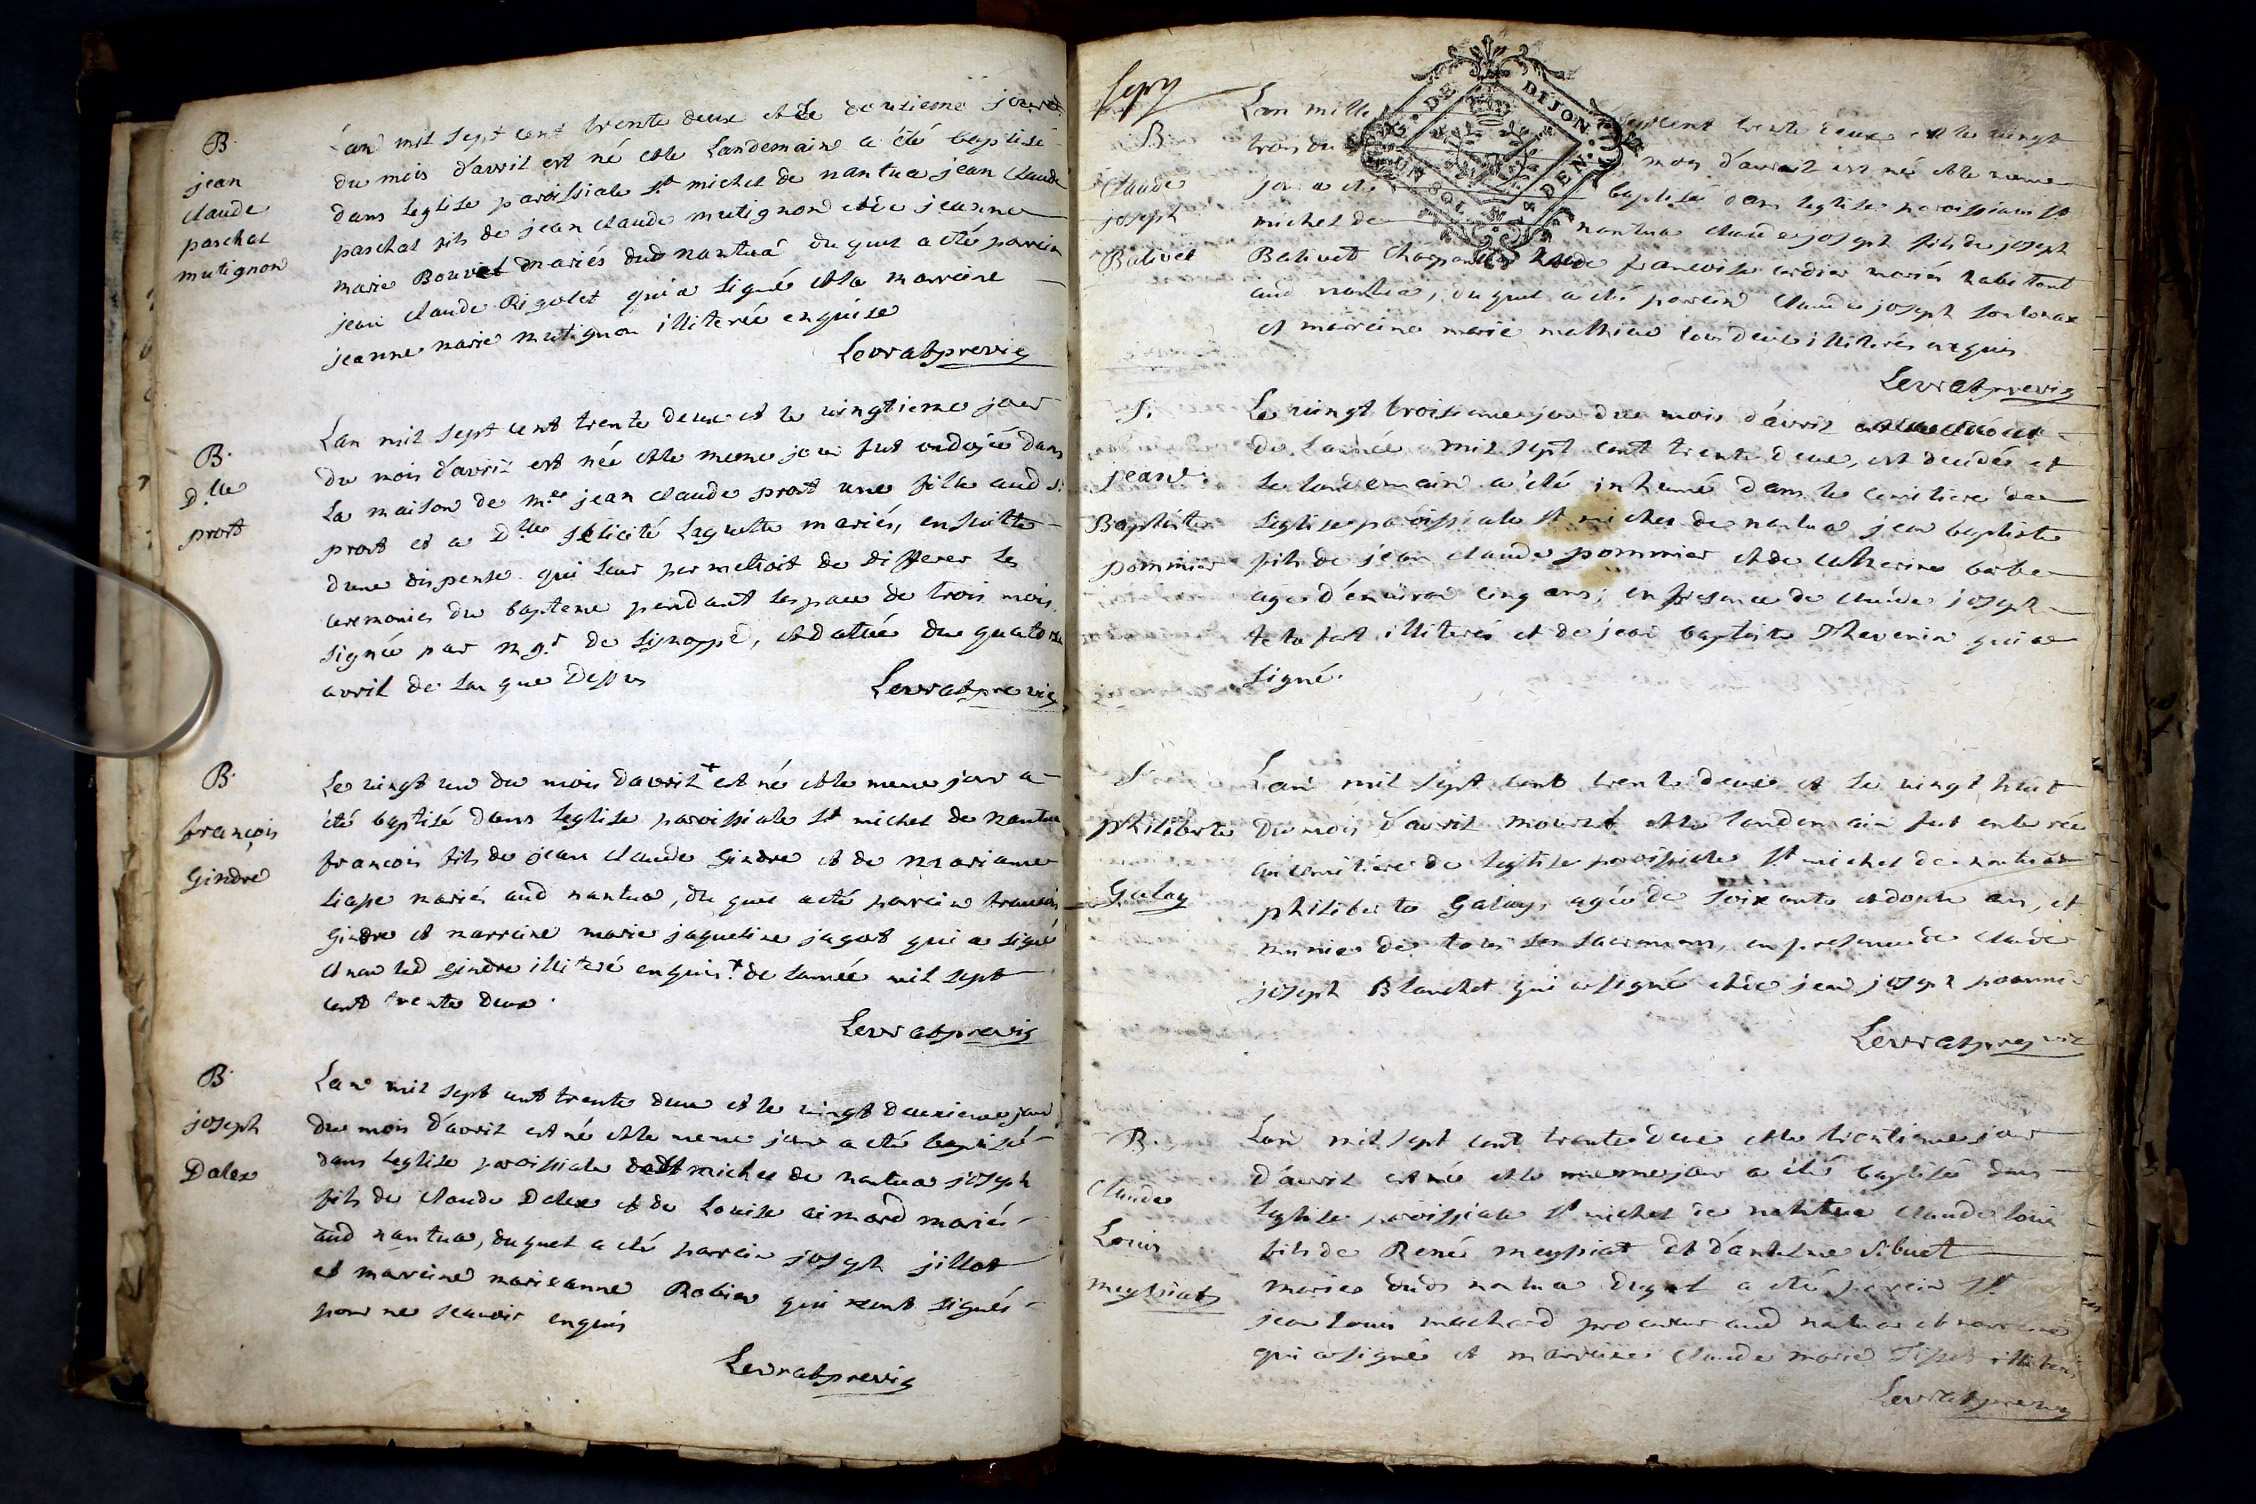 B.
jean
claude
paschal
mutignon
Lan mil sept cent trente deux et le douzieme jour
du mois d'avril est né et le landemain a été baptisé
dans leglise paroissiale st michel de nantua jean claude
paschal fils de jean claude mutignon et de jeanne
marie Bouvet mariés dud nantua duquel a été parrein
jean claude Rigolet qui a signé et la marreine
jeanne marie mutignon illiterée enquise
Levrat previc
B.
Dlle
prost
Lan mil sept cent trente deux et le vingtieme jour
du mois d'avril est née et le meme jour fut ondoiée dans
la maison de me jean claude prost une fille aud sr
prost et a Dlle felicité Laguette mariés, ensuitte
dune dispense qui leur permettoit de differer les
ceremonies du bapteme pendant lespace de trois mois
signée par mgr de sinoppe, et datée du quatorze
avril de lan que dessus
Levrat previc
B.
françois
Gindre
Le vingt un du mois davril + est né et le meme jour a
été baptisé dans leglise paroissiale st michel de nantua
françois fils de jean claude Gindre et de mariane
liape mariés aud nantua, du quel a été parrein francois
Gindre et marreine marie jaqueline jagot qui a signé
et non led Gindre illiteré enquis + de lannée mil sept
cent trente deux.
Levrat previc
B.
joseph
Dalex
Lan mil sept cent trente deux et le vingt deuxieme jour
du mois d'avril est né et le meme jour a été baptisé
dans leglise paroissiale de st michel de nantua joseph
fils de claude Dalex et de Louise aimard mariés
aud nantua, duquel a été parrein joseph jillot
et marreine marieanne Robin qui n'ont signés
pour ne scavoir enquis
Levrat previc
sept
B
claude
joseph
Balivet
G. DE DIJON. DEN.
Lan mille sept cent trente deux et le vingt
trois du mois d'avril est né et le meme
jour a été baptisé dans leglise paroissiale st
michel de nantua claude joseph fils de joseph
Balivet charpentier et de francoise cordier mariés habitant
aud nantua, duquel a été parrein claude joseph
et marreine marie mathieu tous deux illiterés enquis
Levrat previc
S.
jean
Baptiste
pommier
Le vingt troisieme jour du mois d'avril
de lannée mil sept cent trente deux, est decedé et
le landemain a été inhumé dans le cimitiere de
leglise paroissiale st michel de nantua jean baptiste
fils de jean claude pommier et de catherine barbe
agé d'environ cinq ans, en presence de claude joseph
illiteré et de jean baptiste Thevenin qui a
signé.
S.
philiberte
Galay
Lan mil sept cent trente deux et le vingt huit
du mois d'avril mourut et le landemain fut enterée
au cimitiere de leglise paroissiale st michel de nantua
philiberte Galay, agée de soixante et douze ans, et
munie de tous les sacremens, en presence de claude
joseph Blanchet qui a signé et de jean joseph pommier
Levrat previc
B.
claude
Louis
meyssiat
Lan mil sept cent trente deux et le trentieme jour
d'avril est né et le mesme jour a été baptisé dans
leglise paroissiale st michel de nantua claude louis
fils de René meyssiat et d'antelme sibuet
mariés dud nantua duquel a été parrein sr
jean Louis machard procureur aud nantua
qui a signé et marreine claude marie Tissot illiteré
Levrat previc